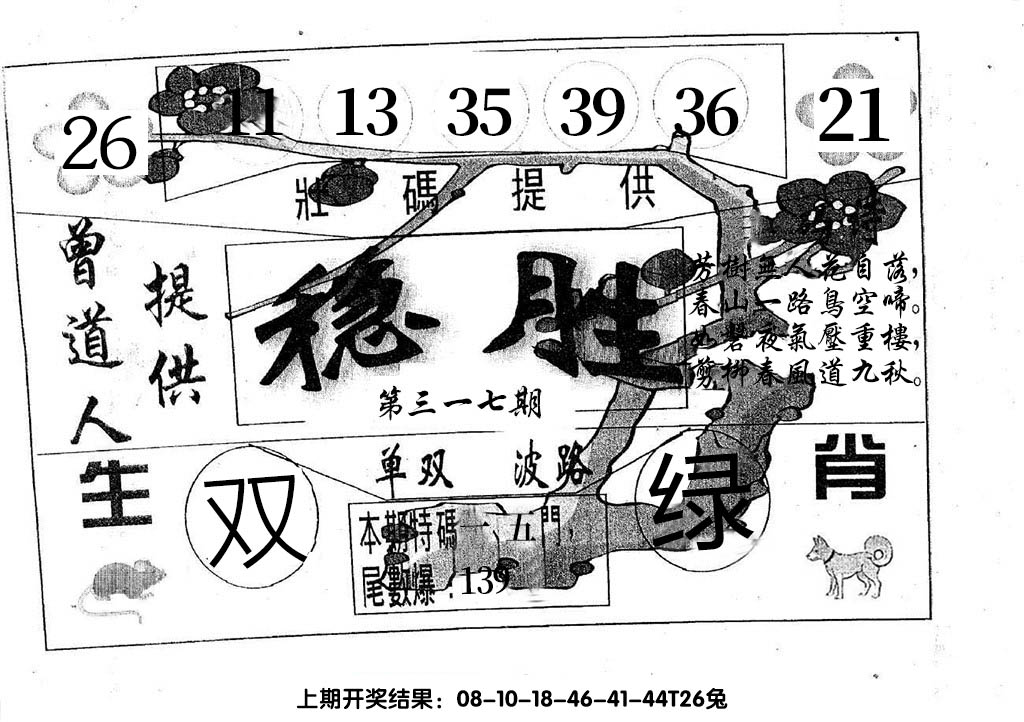 26 11 13 35 39 36 21
壯碼提供
曾道人
提供
稳胜
第三一七期
芳樹無人花自落，
春山一路鳥空啼。
夜氣壓重樓，
剪梆春風道九秋。
单双 波路
生肖
双 绿
本期特碼一、五門，
尾數爆：139
上期开奖结果：08-10-18-46-41-44T26兔